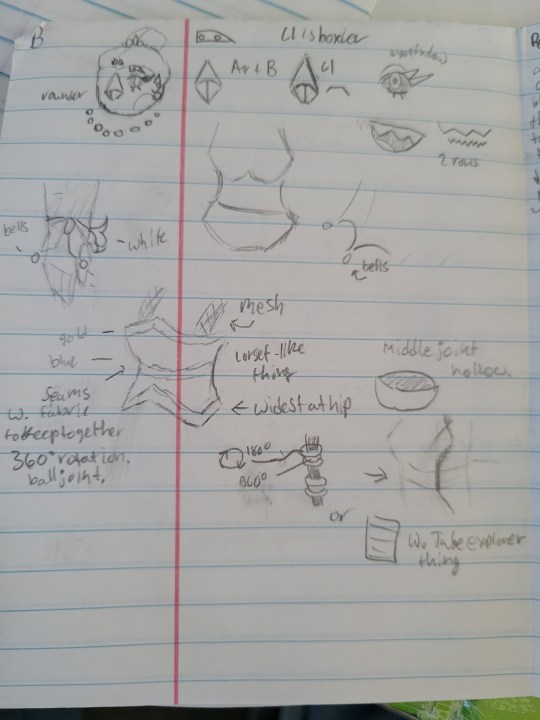 B
Cl is border
eyeshadow
Ar + B
Cl
2 rows
bells
- white
bells
mesh
gold -
blue -
corset-like
thing
Middle joint
hollow.
Seams
w. fabric
to keep together.
← widest at hip
360° rotation.
ball joint.
180°
360°
or
thing